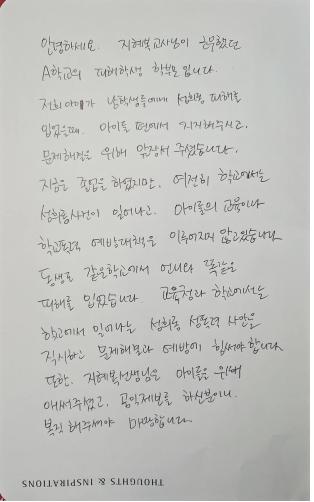 안녕하세요. 지혜복교사님이 근무했던
A학교의 피해학생 학부모 입니다.
저희 아이가 남학생들에게 성희롱 피해를
입었을때, 아이들 편에서 지지해주시고,
문제해결을 위해 앞장서 주셨습니다.
지금은 졸업을 하였지만, 여전히 학교에서는
성희롱사건이 일어나고, 아이들의 교육이나
학교폭력 예방대책은 이루어지지 않고있습니다.
동생도 같은학교에서 언니와 똑같은
피해를 입었습니다. 교육청과 학교에서는
학교에서 일어나는 성희롱 성폭력 사안을
직시하고 문제해결과 예방에 힘써야 합니다.
또한, 지혜복선생님은 아이들을 위해
애써주셨고, 공익제보를 하신분이니
복직 해주셔야 마땅합니다.
THOUGHTS & INSPIRATIONS